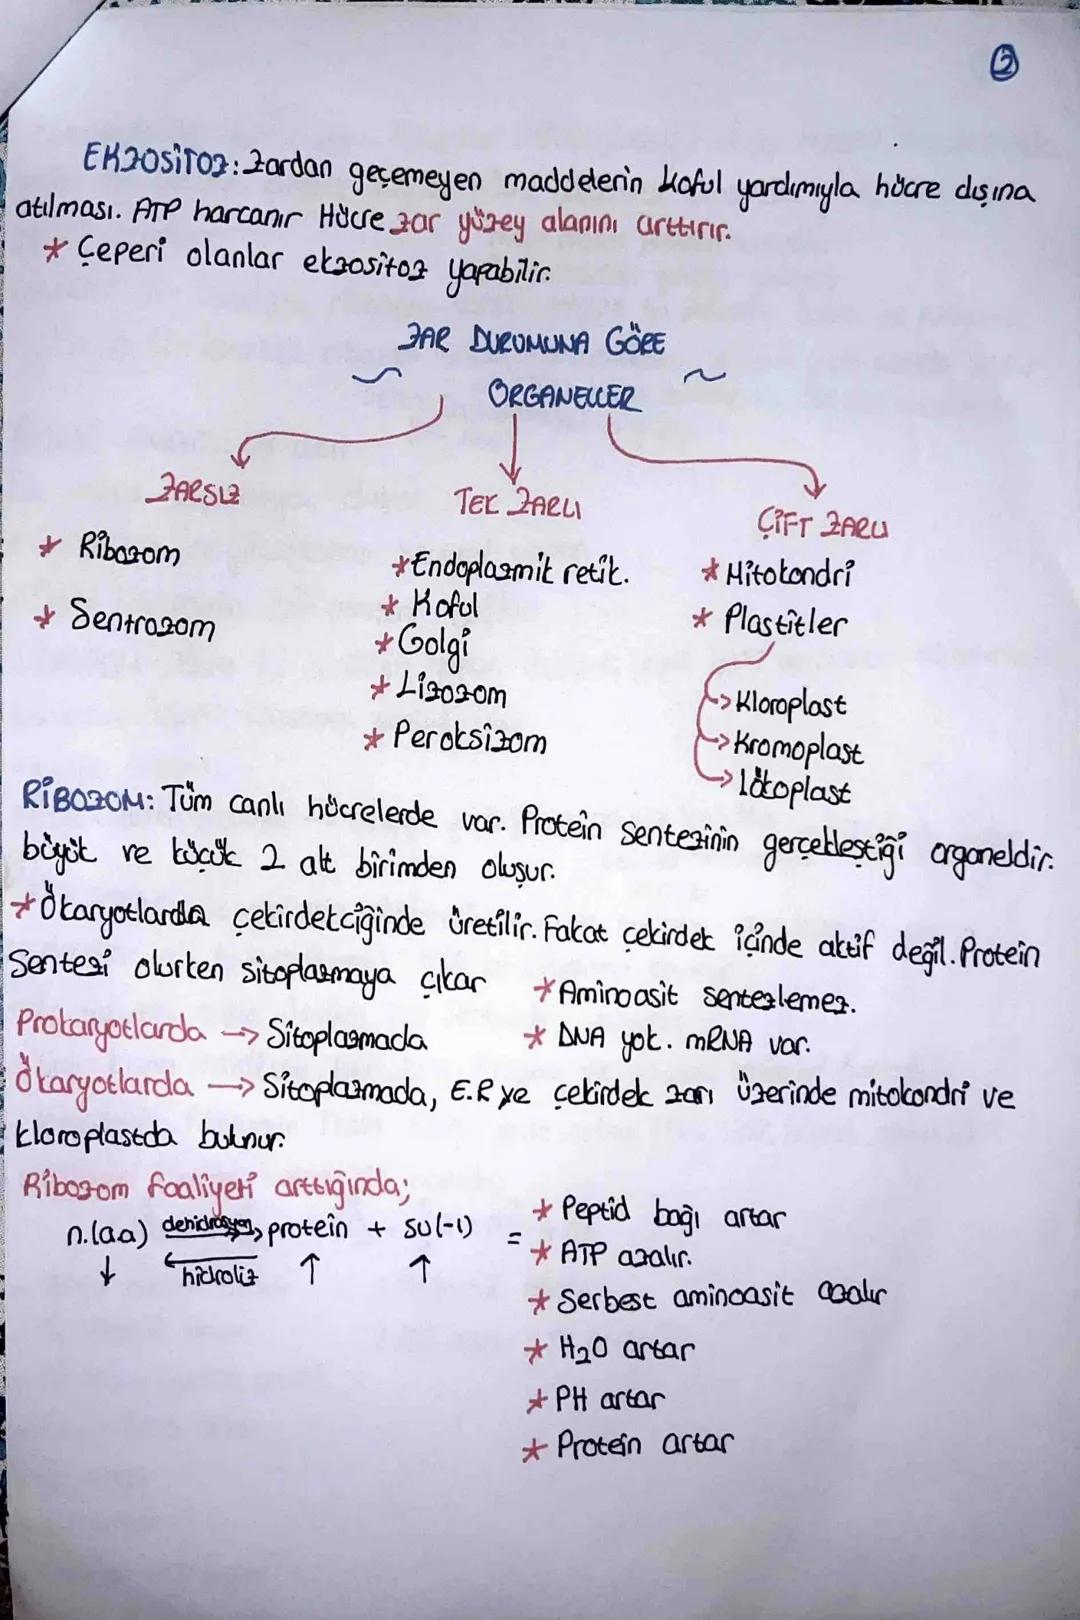 2
EKZOSİTOZ: Zardan geçemeyen maddelerin koful yardımıyla hücre dışına
atılması. ATP harcanır Hücre zar yüzey alanını arttırır.
* Çeperi olanlar ekzositoz yapabilir.
ZAR DURUMUNA GÖRE
ORGANELLER
ZARSIZ
TEK ZARLI
ÇİFT ZARLI
* Ribozom
* Sentrozom
* Endoplazmik retik.
* Koful
* Golgi
* Lizozom
* Peroksizom
* Mitokondri
* Plastitler
→ Kloroplast
→ Kromoplast
→ lökoplast
RİBOZOM: Tüm canlı hücrelerde var. Protein sentezinin gerçekleştiği organeldir.
büyük ve küçük 2 alt birimden oluşur.
* Ökaryotlarda çekirdekciğinde üretilir. Fakat çekirdek içinde aktif değil. Protein
Sentezi olurken sitoplazmaya çıkar
* Aminoasit sentezlemez.
Prokaryotlarda → Sitoplazmada
* DNA yok. mRNA var.
Ökaryotlarda → Sitoplazmada, E.R ve çekirdek zarı üzerinde mitokondri ve
kloroplastda bulnur.
Ribozom faaliyeti arttığında;
n.(aa) dehidrasyon→ protein + su(-1) =
↓ ← hidroliz ↑ ↑
* Peptid bağı artar
* ATP azalır.
* Serbest aminoasit azalır
* H₂O artar
* PH artar
* Protein artar